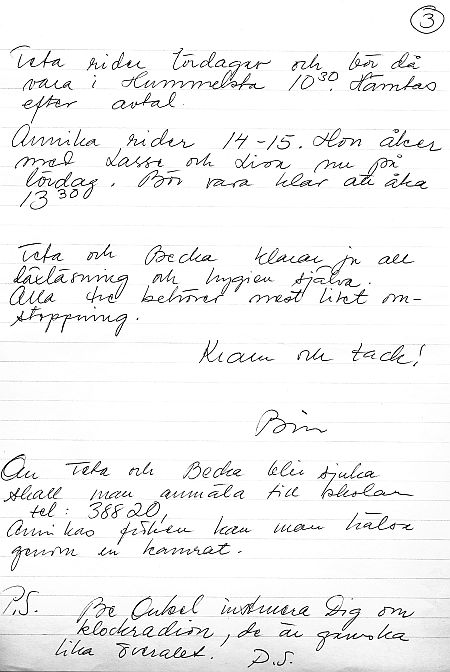 3
Teta rider lördagar och bör då
vara i Hummelsta 10 30. Hämtas
efter avtal.
Annika rider 14-15. Hon åker
med Lasse och Lisa nu på
lördag. Bör vara klar att åka
13 30
Teta och Becka klarar ju all
läxläsning och hygien själva.
Alla tre behöver mest litet om-
stoppning.
Kram och tack!
Om Teta och Becka blir sjuka
skall man anmäla till skolan
tel: 38820,
Annikas fröken kan man hälsa
genom en kamrat.
P.S. Be Onkel instruera Dig om
klockradion, de är ganska
lika överallt. D.S.